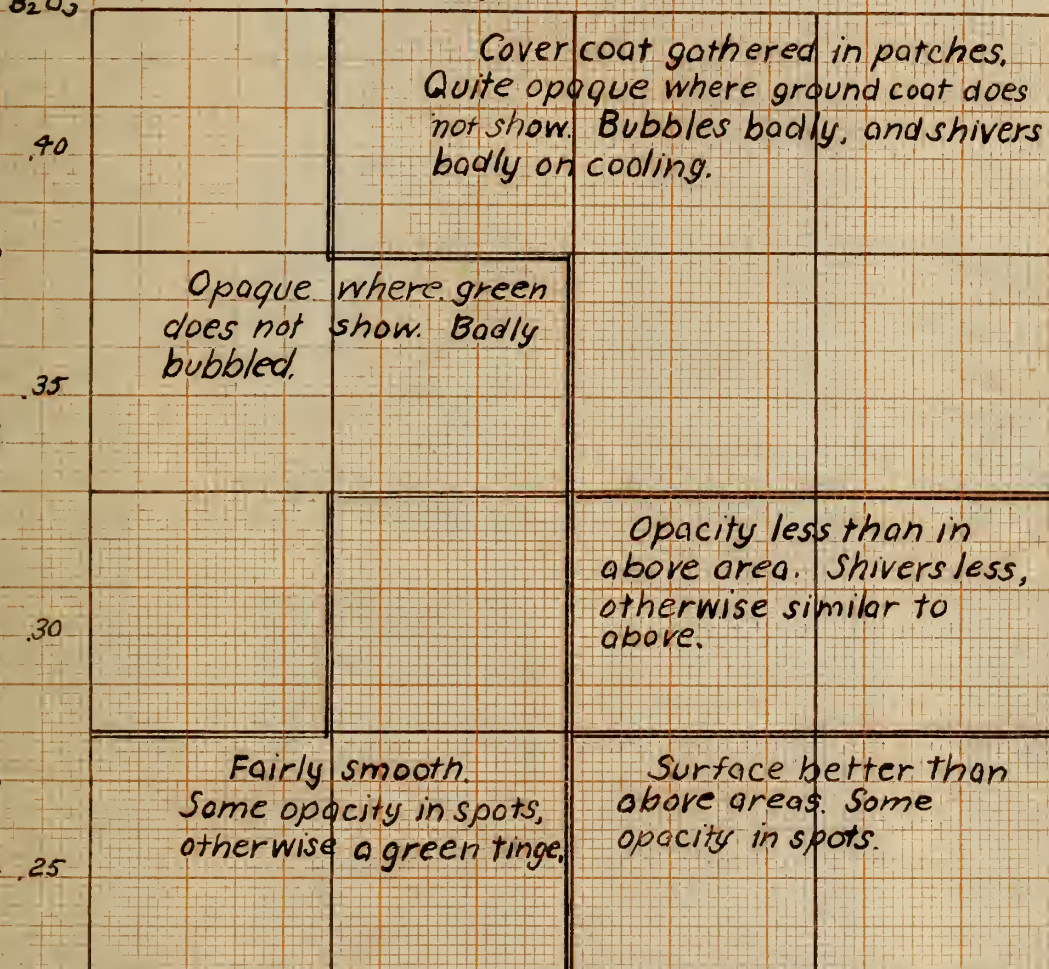 B2O3
Cover coat gathered in patches.
Quite opaque where ground coat does
not show. Bubbles badly, and shivers
badly on cooling.
.40
Opaque where green
does not show. Badly
bubbled.
.35
Opacity less than in
above area. Shivers less,
otherwise similar to
above.
.30
Fairly smooth.
Some opacity in spots,
otherwise a green tinge.
Surface better than
above areas. Some
opacity in spots.
.25